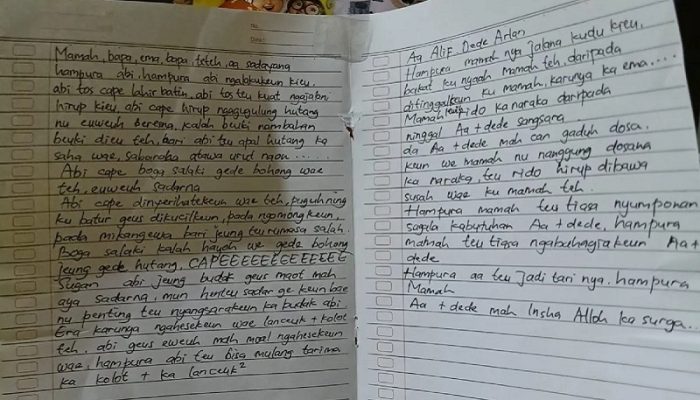 No.
Date:
Mamah, bapa, ema, bapa, teteh, aa sadayana
hampura abi, hampura abi ngalakukeun kieu,
abi tos cape lahir batin, abi tos teu kuat ngajalani
hirup kieu, abi cape hirup ngagugulung hutang
nu euweuh berena, kalah beuki nambahan
beuki dieu teh, bari abi teu apal hutang ka
saha wae, sabaraha atawa urut naon ....
Abi cape boga salaki gede bohong wae
teh, euweuh sadarna
Abi cape dinyerihatekeun wae teh,
ku batur geus dikucilkeun, pada ngomongkeun,
pada mikangewa bari jeung teu rumasa salah.
Boga salaki kalah hayoh we gede bohong
jeung gede hutang, CAPEEEEEEEEEEEEEE
Sugan abi jeung budak geus maot mah
aya sadarna, mun henteu sadar ge keun bae
nu penting teu nyangsarakeun ka budak abi
Era karunya ngahesekeun wae lanceuk + kolot
teh, abi geus eweuh mah moal ngahesekeun
wae, hampura abi teu bisa mulang tarima
ka kolot + ka lanceuk²
Aa Alif Dede Arlan
Hampura mamah nya jalana kudu kieu,
bakat ku nyaah mamah teh, daripada
ditinggalkeun ku mamah, karunya ka ema....
Mamah leuwih rido ka naraka daripada
ninggal Aa + dede sangsara
da Aa + dede mah can gaduh dosa.
keun we mamah nu nanggung dosana
ka naraka, teu rido hirup dibawa
susah wae ku mamah teh.
Hampura mamah teu tiasa nyumponan
sagala kabutuhan Aa + dede, hampura
mamah teu tiasa ngabahagiakeun Aa +
dede
Hampura aa teu jadi tari nya, hampura
Mamah
Aa + dede mah Insha Alloh ka surga...